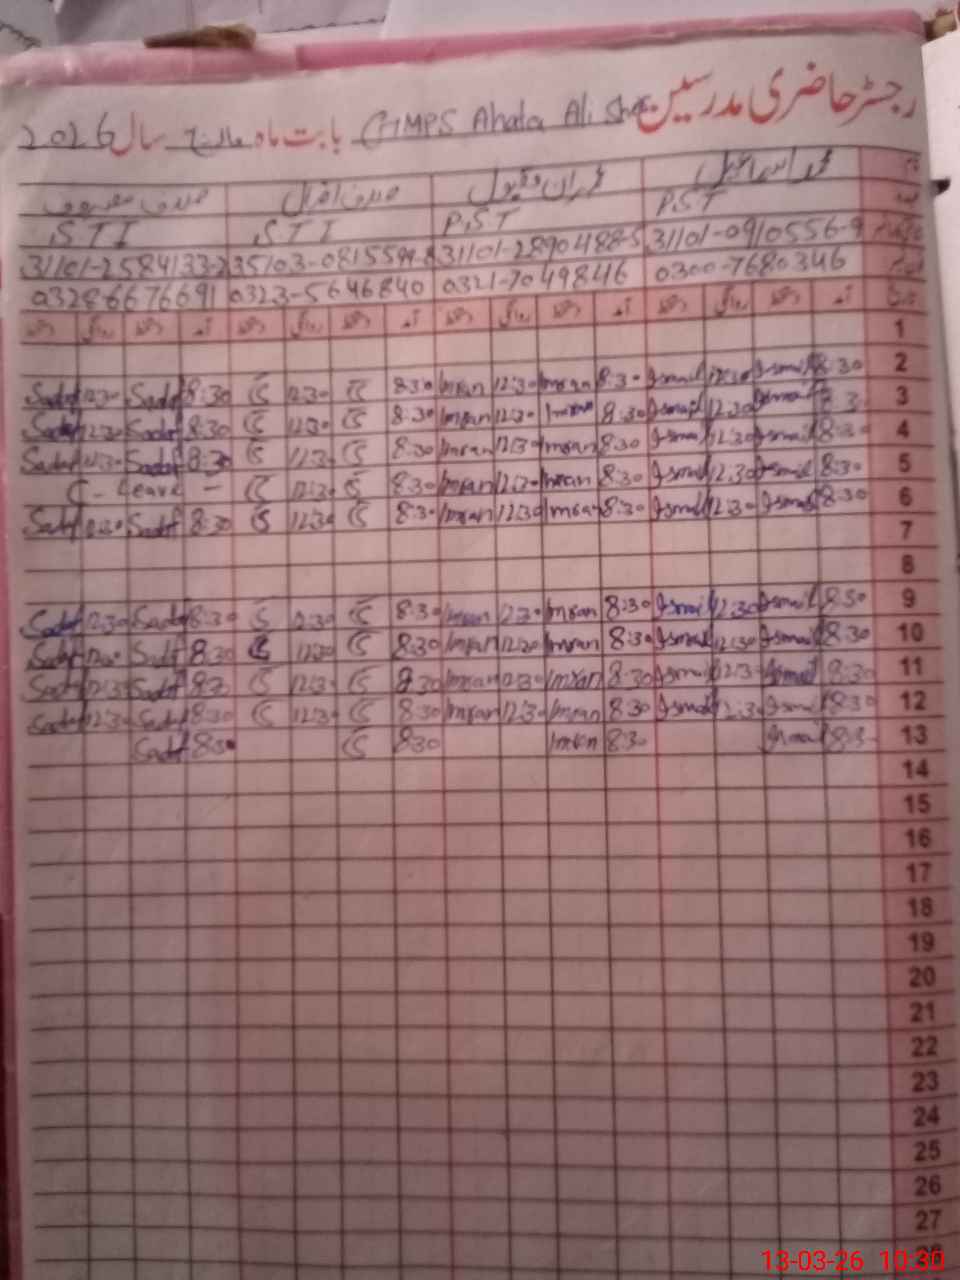 رجسٹر حاضری مدرسین GMPS Ahata Ali Shah بابت ماہ مارچ سال 2026
محمد اسماعیل عمران مقبول صدف اقبال صدف
PST PST STI STI
31101-0910556-9 31101-2890488-5 35103-08155 31101-2584133-2
0300-7680346 0321-7049846 0323-5646840 03286676691
آمد دستخط روانگی دستخط آمد دستخط روانگی دستخط آمد دستخط روانگی دستخط آمد دستخط روانگی دستخط
1
Sadaf 12:30 Sadaf 8:30 12:30 8:30 Imran 12:30 Imran 8:30 Ismail 12:30 Ismail 8:30 2
Sadaf 12:30 Sadaf 8:30 12:30 8:30 Imran 12:30 Imran 8:30 Ismail 12:30 Ismail 8:30 3
Sadaf 12:30 Sadaf 8:30 12:30 8:30 Imran 12:30 Imran 8:30 Ismail 12:30 Ismail 8:30 4
C - Leave - 12:30 8:30 Imran 12:30 Imran 8:30 Ismail 12:30 Ismail 8:30 5
Sadaf 12:30 Sadaf 8:30 12:30 8:30 Imran 12:30 Imran 8:30 Ismail 12:30 Ismail 8:30 6
7
8
Sadaf 12:30 Sadaf 8:30 12:30 8:30 Imran 12:30 Imran 8:30 Ismail 12:30 Ismail 8:30 9
Sadaf 12:30 Sadaf 8:30 12:30 8:30 Imran 12:30 Imran 8:30 Ismail 12:30 Ismail 8:30 10
Sadaf 12:30 Sadaf 8:30 12:30 8:30 Imran 12:30 Imran 8:30 Ismail 12:30 Ismail 8:30 11
Sadaf 12:30 Sadaf 8:30 12:30 8:30 Imran 12:30 Imran 8:30 Ismail 12:30 Ismail 8:30 12
Sadaf 8:30 8:30 Imran 8:30 Ismail 8:30 13
14
15
16
17
18
19
20
21
22
23
24
25
26
27
28
13-03-26 10:30